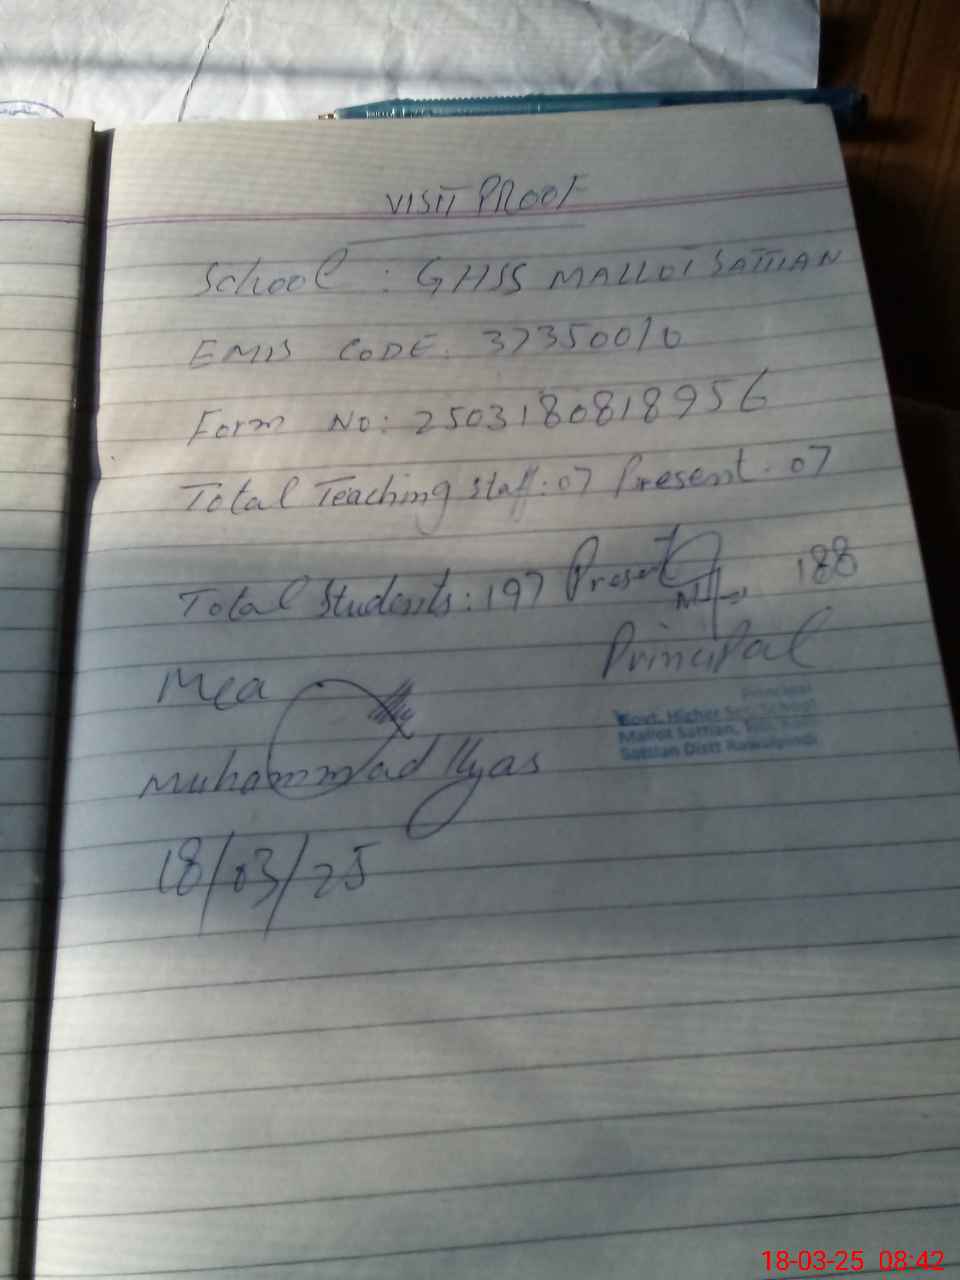 VISIT PROOF
School : GHSS MALLOT SATTIAN
EMIS CODE: 37350010
Form No: 2503180818956
Total Teaching Staff: 07 Present: 07
Total Students: 197 Present 188
Principal
Mea
Principal
Govt. Higher Sec. School
Mallot Sattian,
Sattian Distt Rawalpindi
Muhammad Ilyas
18/03/25
18-03-25 08:42